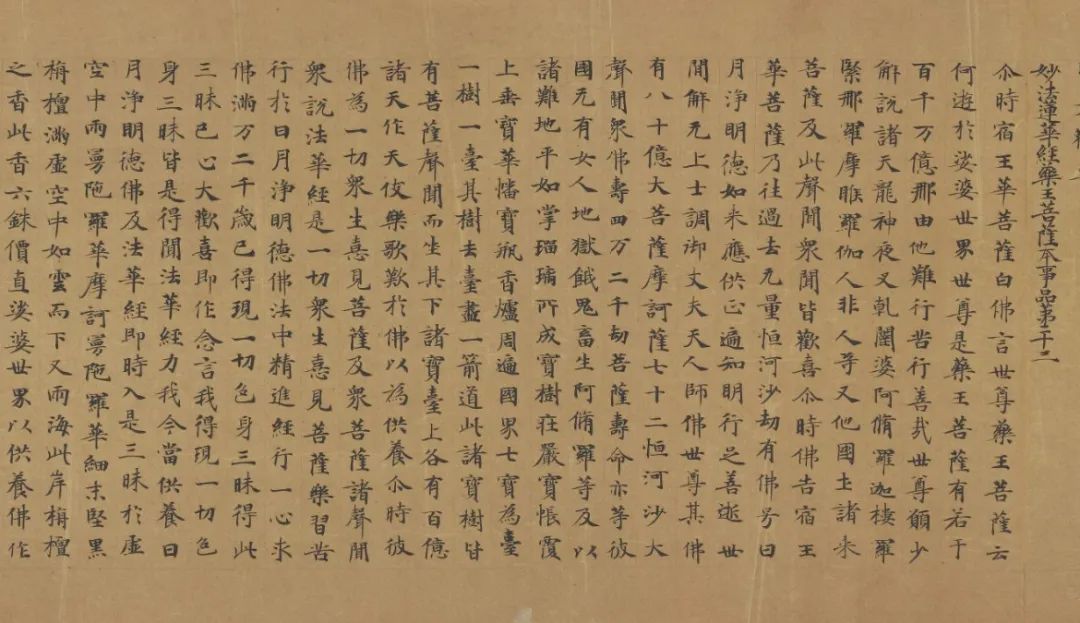 妙法蓮華經藥王菩薩本事品第二十二
尒時宿王華菩薩白佛言世尊藥王菩薩云
何遊於娑婆世界世尊是藥王菩薩有若干
百千万億那由他難行苦行善哉世尊願少
解說諸天龍神夜叉乹闥婆阿脩羅迦樓羅
緊那羅摩睺羅伽人非人等又他國土諸来
菩薩及此聲聞衆聞皆歡喜尒時佛告宿王
華菩薩乃往過去无量恒河沙劫有佛号日
月淨明德如来應供正遍知明行足善逝世
間解无上士調御丈夫天人師佛世尊其佛
有八十億大菩薩摩訶薩七十二恒河沙大
聲聞衆佛壽四万二千劫菩薩壽命亦等彼
國无有女人地獄餓鬼畜生阿脩羅等及以
諸難地平如掌瑠璃所成寶樹莊嚴寶帳覆
上垂寶華幡寶瓶香爐周遍國界七寶為臺
一樹一臺其樹去臺盡一箭道此諸寶樹皆
有菩薩聲聞而坐其下諸寶臺上各有百億
諸天作天伎樂歌歎於佛以為供養尒時彼
佛為一切衆生憙見菩薩及衆菩薩諸聲聞
衆說法華經是一切衆生憙見菩薩樂習苦
行於日月淨明德佛法中精進經行一心求
佛滿万二千歲已得現一切色身三昧得此
三昧已心大歡喜即作念言我得現一切色
身三昧皆是得聞法華經力我今當供養日
月淨明德佛及法華經即時入是三昧於虛
空中雨曼陁羅華摩訶曼陁羅華細末堅黑
栴檀滿虛空中如雲而下又雨海此岸栴檀
之香此香六銖價直娑婆世界以供養佛作